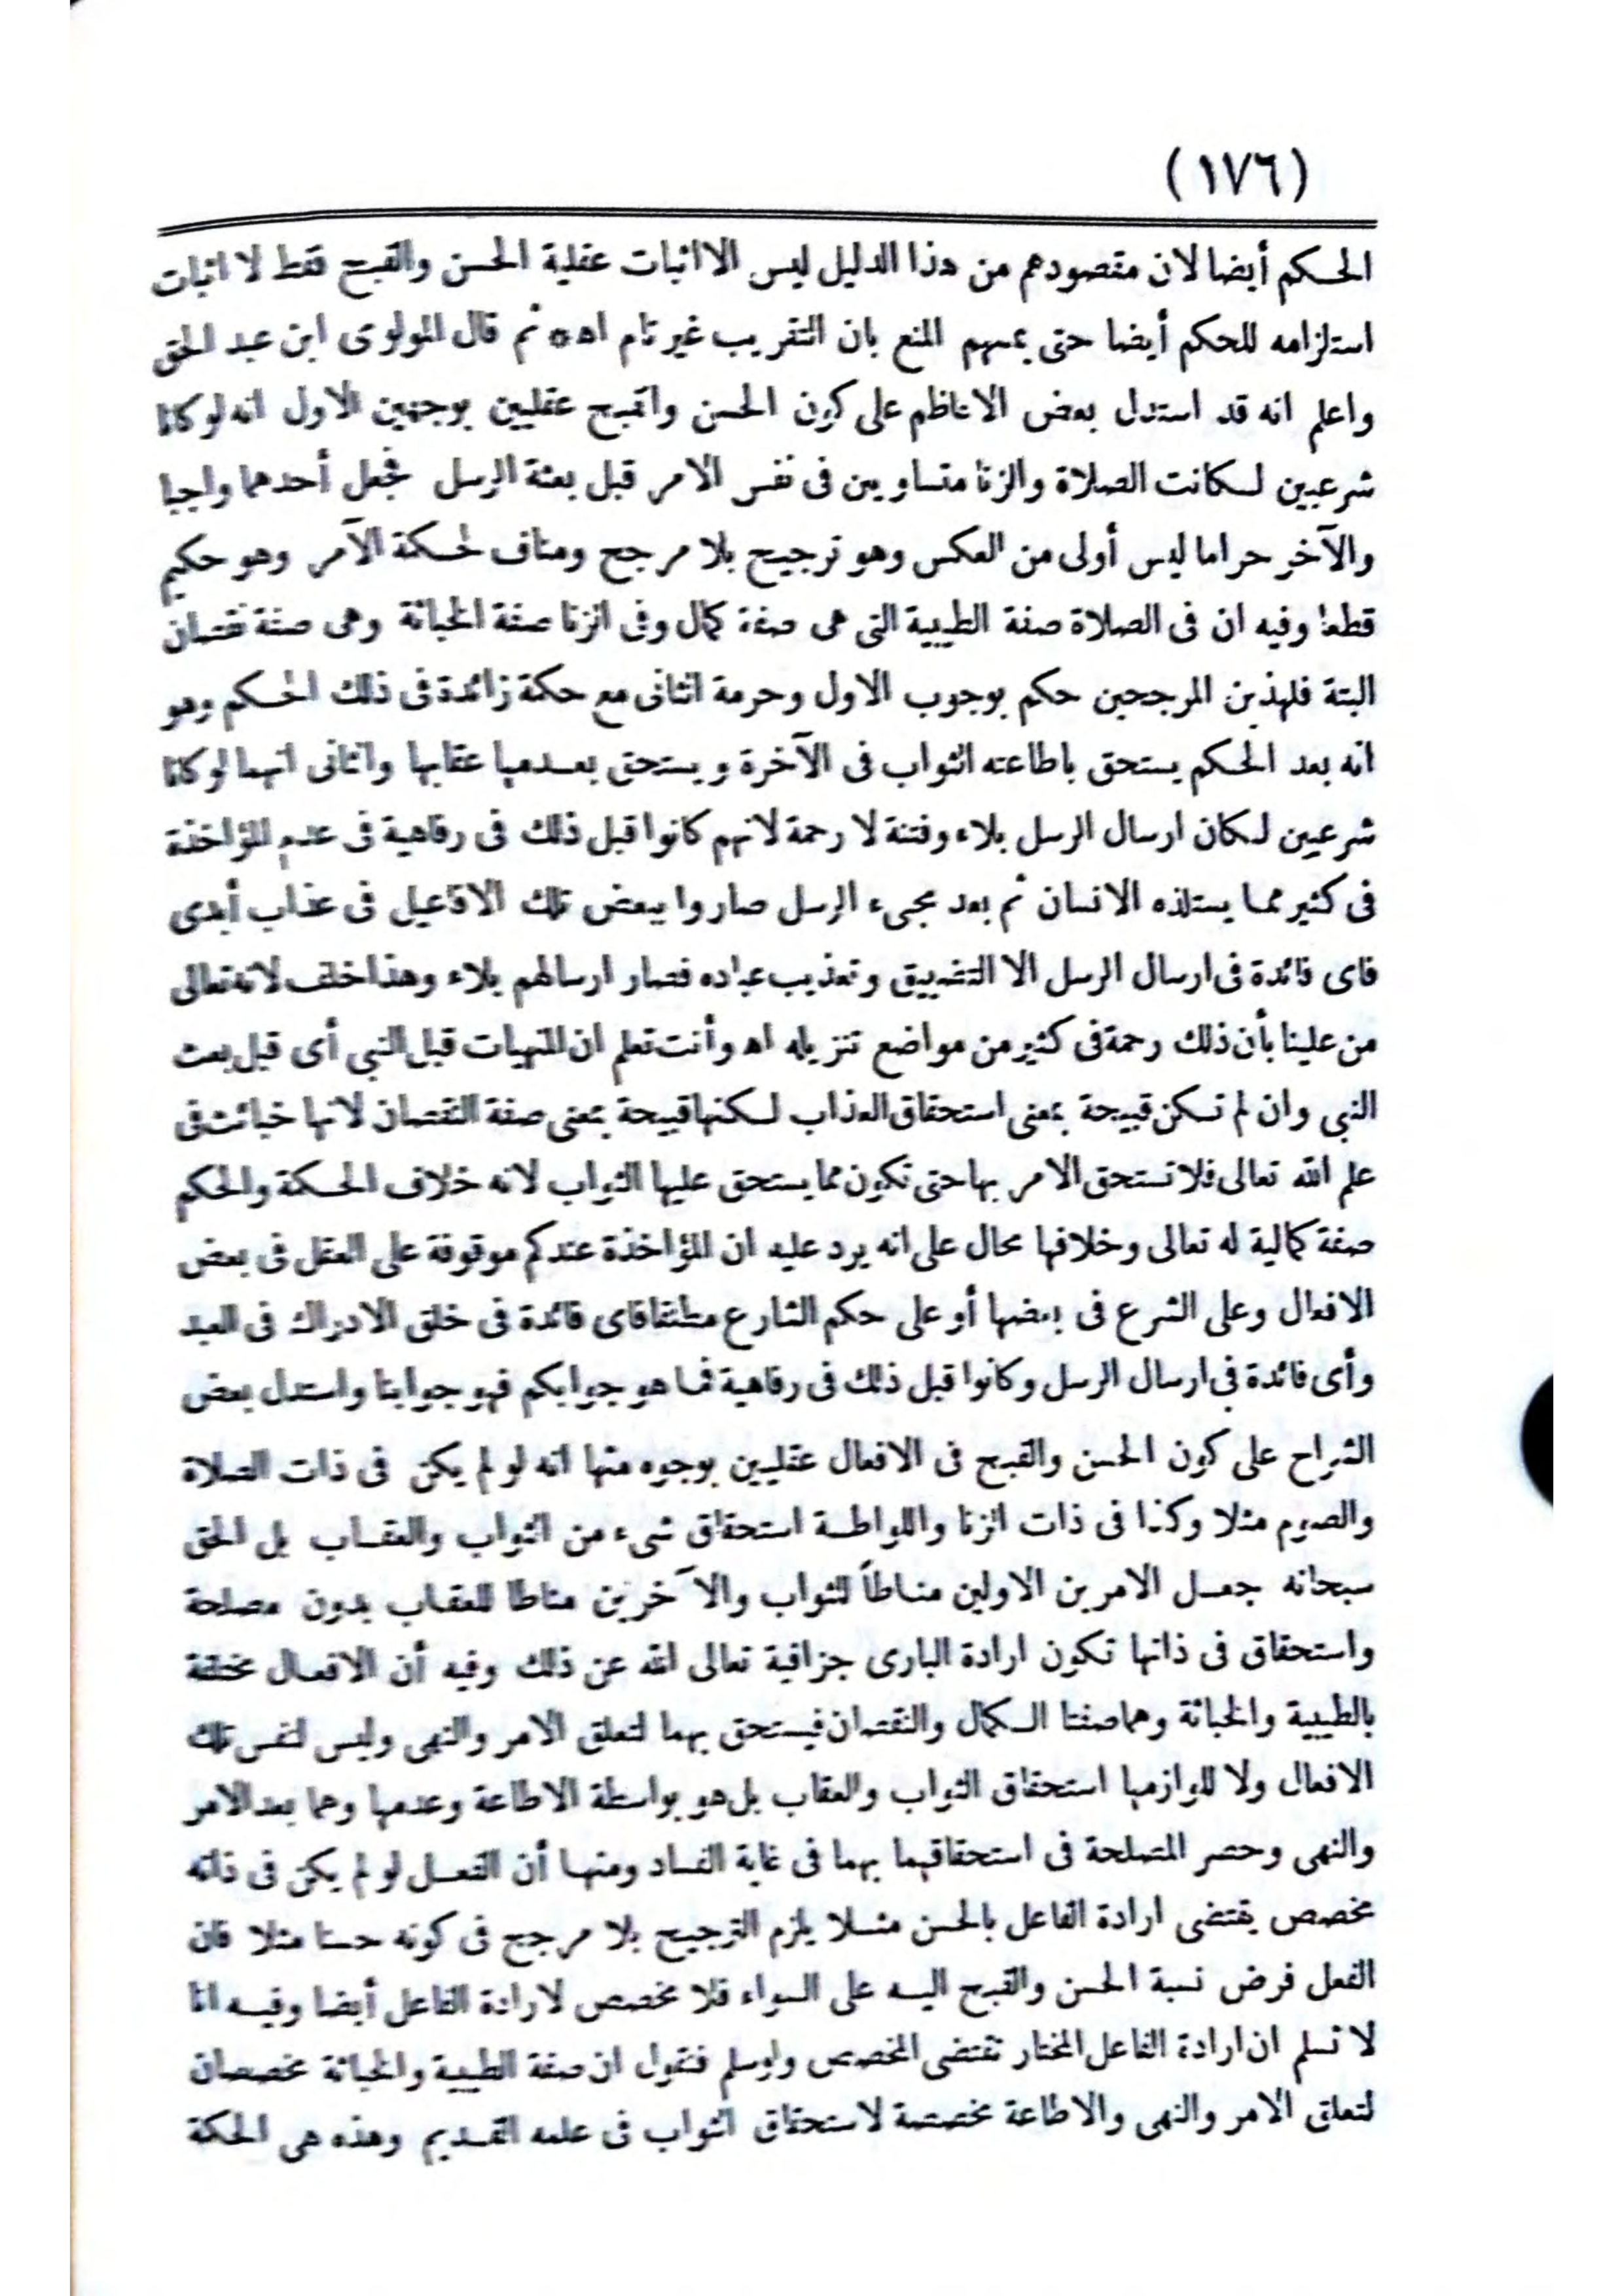 (١٧٦)
الحكم أيضا لان مقصودهم من هذا الدليل ليس الا اثبات عقلية الحسن والقبح فقط لا اثبات
استلزامه للحكم أيضا حتى يمسهم المنع بان التقريب غير تام اه * ثم قال المولوى ابن عبد الحق
واعلم انه قد استدل بعض الاعاظم على كون الحسن والقبح عقليين بوجهين الاول انه لو كانا
شرعيين لكانت الصلاة والزنا متساويين فى نفس الامر قبل بعثة الرسل فجعل أحدهما واجبا
والآخر حراما ليس أولى من العكس وهو ترجيح بلا مرجح ومناف لحكمة الآمر وهو حكيم
قطعا وفيه ان فى الصلاة صفة الطيبية التى هى صفة كمال وفى الزنا صفة الخباثة وهى صفة نقصان
البتة فلهذين المرجحين حكم بوجوب الاول وحرمة الثانى مع حكمة زائدة فى ذلك الحكم وهو
انه بعد الحكم يستحق باطاعته الثواب فى الآخرة ويستحق بعدمها عقابها والثانى انهما لو كانا
شرعيين لكان ارسال الرسل بلاء وفتنة لا رحمة لانهم كانوا قبل ذلك فى رفاهية فى عدم المؤاخذة
فى كثير مما يستلذه الانسان ثم بعد مجىء الرسل صاروا ببعض تلك الافاعيل فى عذاب أبدى
فاى فائدة فى ارسال الرسل الا التضييق وتعذيب عباده فصار ارسالهم بلاء وهذا خلف لانه تعالى
من علينا بأن ذلك رحمة فى كثير من مواضع تنزيله اه وأنت تعلم ان المنهيات قبل النبي أى قبل بعث
النبي وان لم تكن قبيحة بمعنى استحقاق العذاب لكنها قبيحة بمعنى صفة النقصان لانها خبائث فى
علم الله تعالى فلا تستحق الامر بها حتى تكون مما يستحق عليها الثواب لانه خلاف الحكمة والحكم
صفة كمالية له تعالى وخلافها محال على انه يرد عليه ان المؤاخذة عندكم موقوفة على العقل فى بعض
الافعال وعلى الشرع فى بعضها أو على حكم الشارع مطلقا فاى فائدة فى خلق الادراك فى العبد
وأى فائدة فى ارسال الرسل وكانوا قبل ذلك فى رفاهية فما هو جوابكم فهو جوابنا واستدل بعض
الشراح على كون الحسن والقبح فى الافعال عقليين بوجوه منها انه لو لم يكن فى ذات الصلاة
والصوم مثلا وكذا فى ذات الزنا واللواطة استحقاق شىء من الثواب والعقاب بل الحق
سبحانه جعل الامرين الاولين مناطاً للثواب والآخرين مناطا للعقاب بدون مصلحة
واستحقاق فى ذاتها تكون ارادة البارى جزافية تعالى الله عن ذلك وفيه أن الافعال مختلفة
بالطيبية والخباثة وهما صفتا الكمال والنقصان فيستحق بهما لتعلق الامر والنهى وليس لنفس تلك
الافعال ولا للوازمها استحقاق الثواب والعقاب بل هو بواسطة الاطاعة وعدمها وهما بعد الامر
والنهى وحصر المصلحة فى استحقاقهما بهما فى غاية الفساد ومنها أن الفعل لو لم يكن فى ذاته
مخصص يقتضى ارادة الفاعل بالحسن مثلا يلزم الترجيح بلا مرجح فى كونه حسنا مثلا فان
الفعل فرض نسبة الحسن والقبح اليه على السواء فلا مخصص لارادة الفاعل أيضا وفيه انا
لا نسلم ان ارادة الفاعل المختار تقتضى المخصص ولو سلم فنقول ان صفة الطيبية والخباثة مخصصان
لتعلق الامر والنهى والاطاعة مخصصة لاستحقاق الثواب فى علمه القديم وهذه هى الحكمة